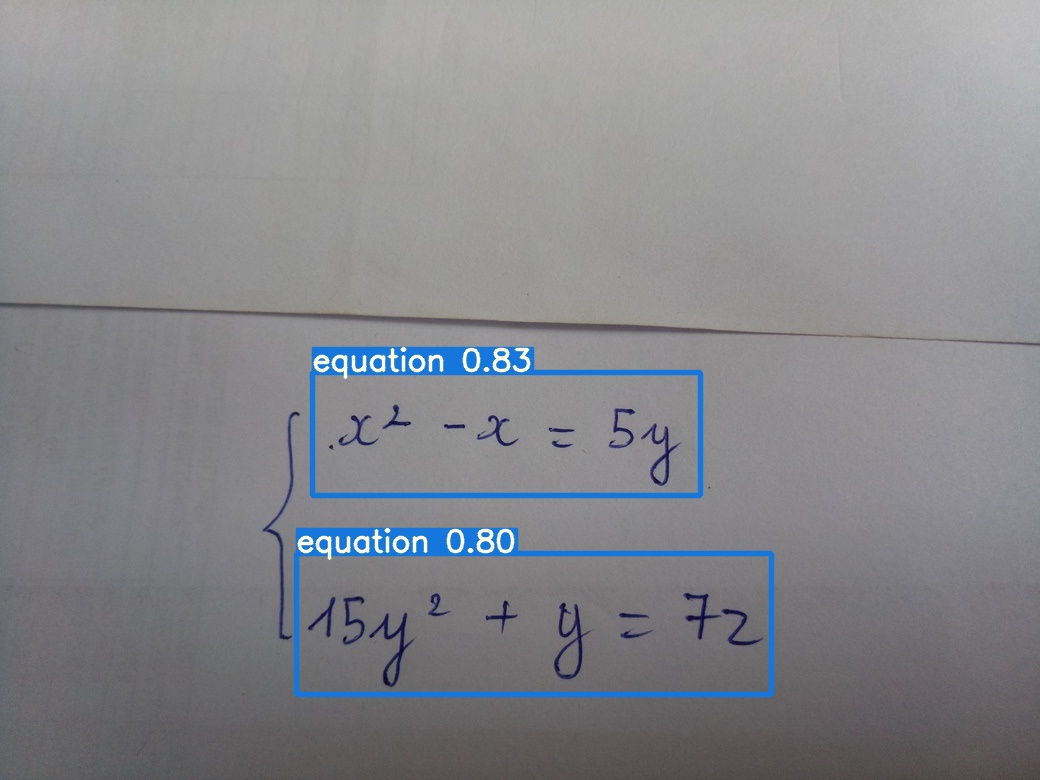 equation 0.83
x² - x = 5y
equation 0.80
15y² + y = 7z